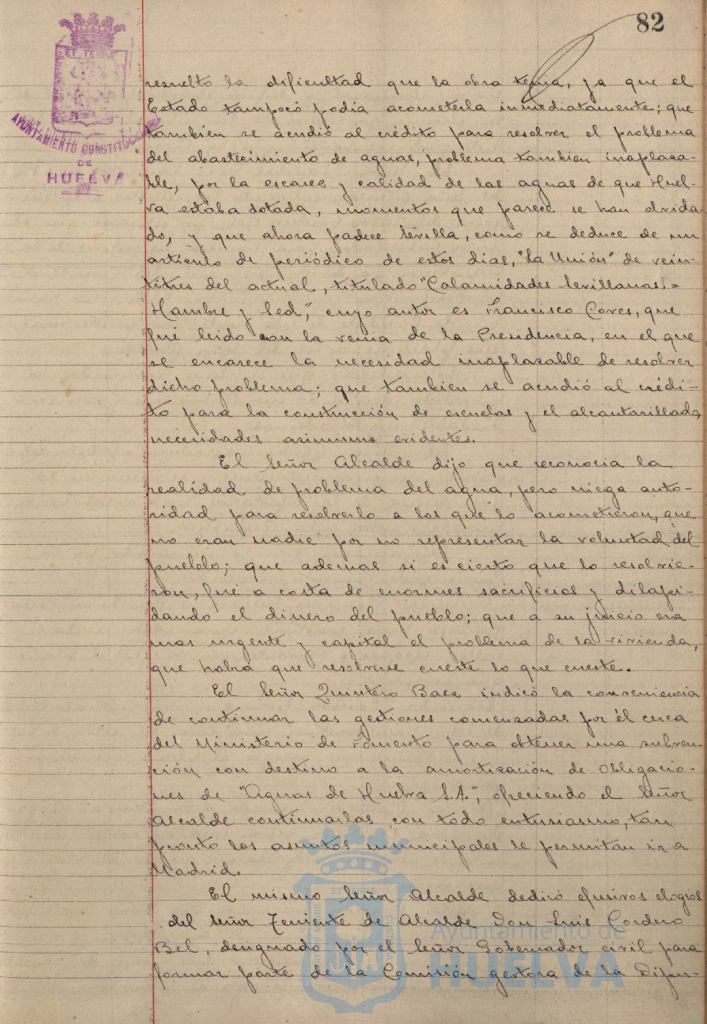 82
AYUNTAMIENTO CONSTITUCIONAL
DE
HUELVA
resuelto la dificultad que la obra tenia, ya que el
Estado tampoco podia acometerla inmediatamente; que
tambien se acudió al crédito para resolver el problema
del abastecimiento de aguas, problema tambien inaplaza-
ble, por la escases y calidad de las aguas de que Huel-
va estaba dotada, momentos que parece se han olvida-
do, y que ahora padece Sevilla, como se deduce de un
articulo de periódico de estos dias, "La Unión" de vein-
titres del actual, titulado "Calamidades Sevillanas.=
Hambre y Sed", cuyo autor es Francisco Coves, que
fué leido con la venia de la Presidencia, en el que
se encarece la necesidad inaplazable de resolver
dicho problema; que tambien se acudió al crédi-
to para la construcción de escuelas y el alcantarillado,
necesidades asimismo evidentes.
El Señor Alcalde dijo que reconocia la
realidad de problema del agua, pero niega auto-
ridad para resolverlo a los que lo acometieron, que
no eran nadie por no representar la voluntad del
pueblo; que ademas si es cierto que lo resolvie-
ron, fué a costa de enormes sacrificios y dilapi-
dando el dinero del pueblo; que a su juicio era
mas urgente y capital el problema de la vivienda,
que habra que resolverse cueste lo que cueste.
El Señor Quintero Baez indicó la conveniencia
de continuar las gestiones comenzadas por él cerca
del Ministerio de Fomento para obtener una subven-
ción con destino a la amortización de Obligacio-
nes de "Aguas de Huelva S.A.", ofreciendo el Señor
Alcalde continuarlas con todo entusiasmo, tan
pronto los asuntos municipales le permitan ir a
Madrid.
El mismo Señor Alcalde dedicó efusivos elogios
del Señor Teniente de Alcalde Don Luis Cordero
Bel, designado por el Señor Gobernador civil para
formar parte de la Comisión gestora de la Dipu-
Ayuntamiento de
HUELVA